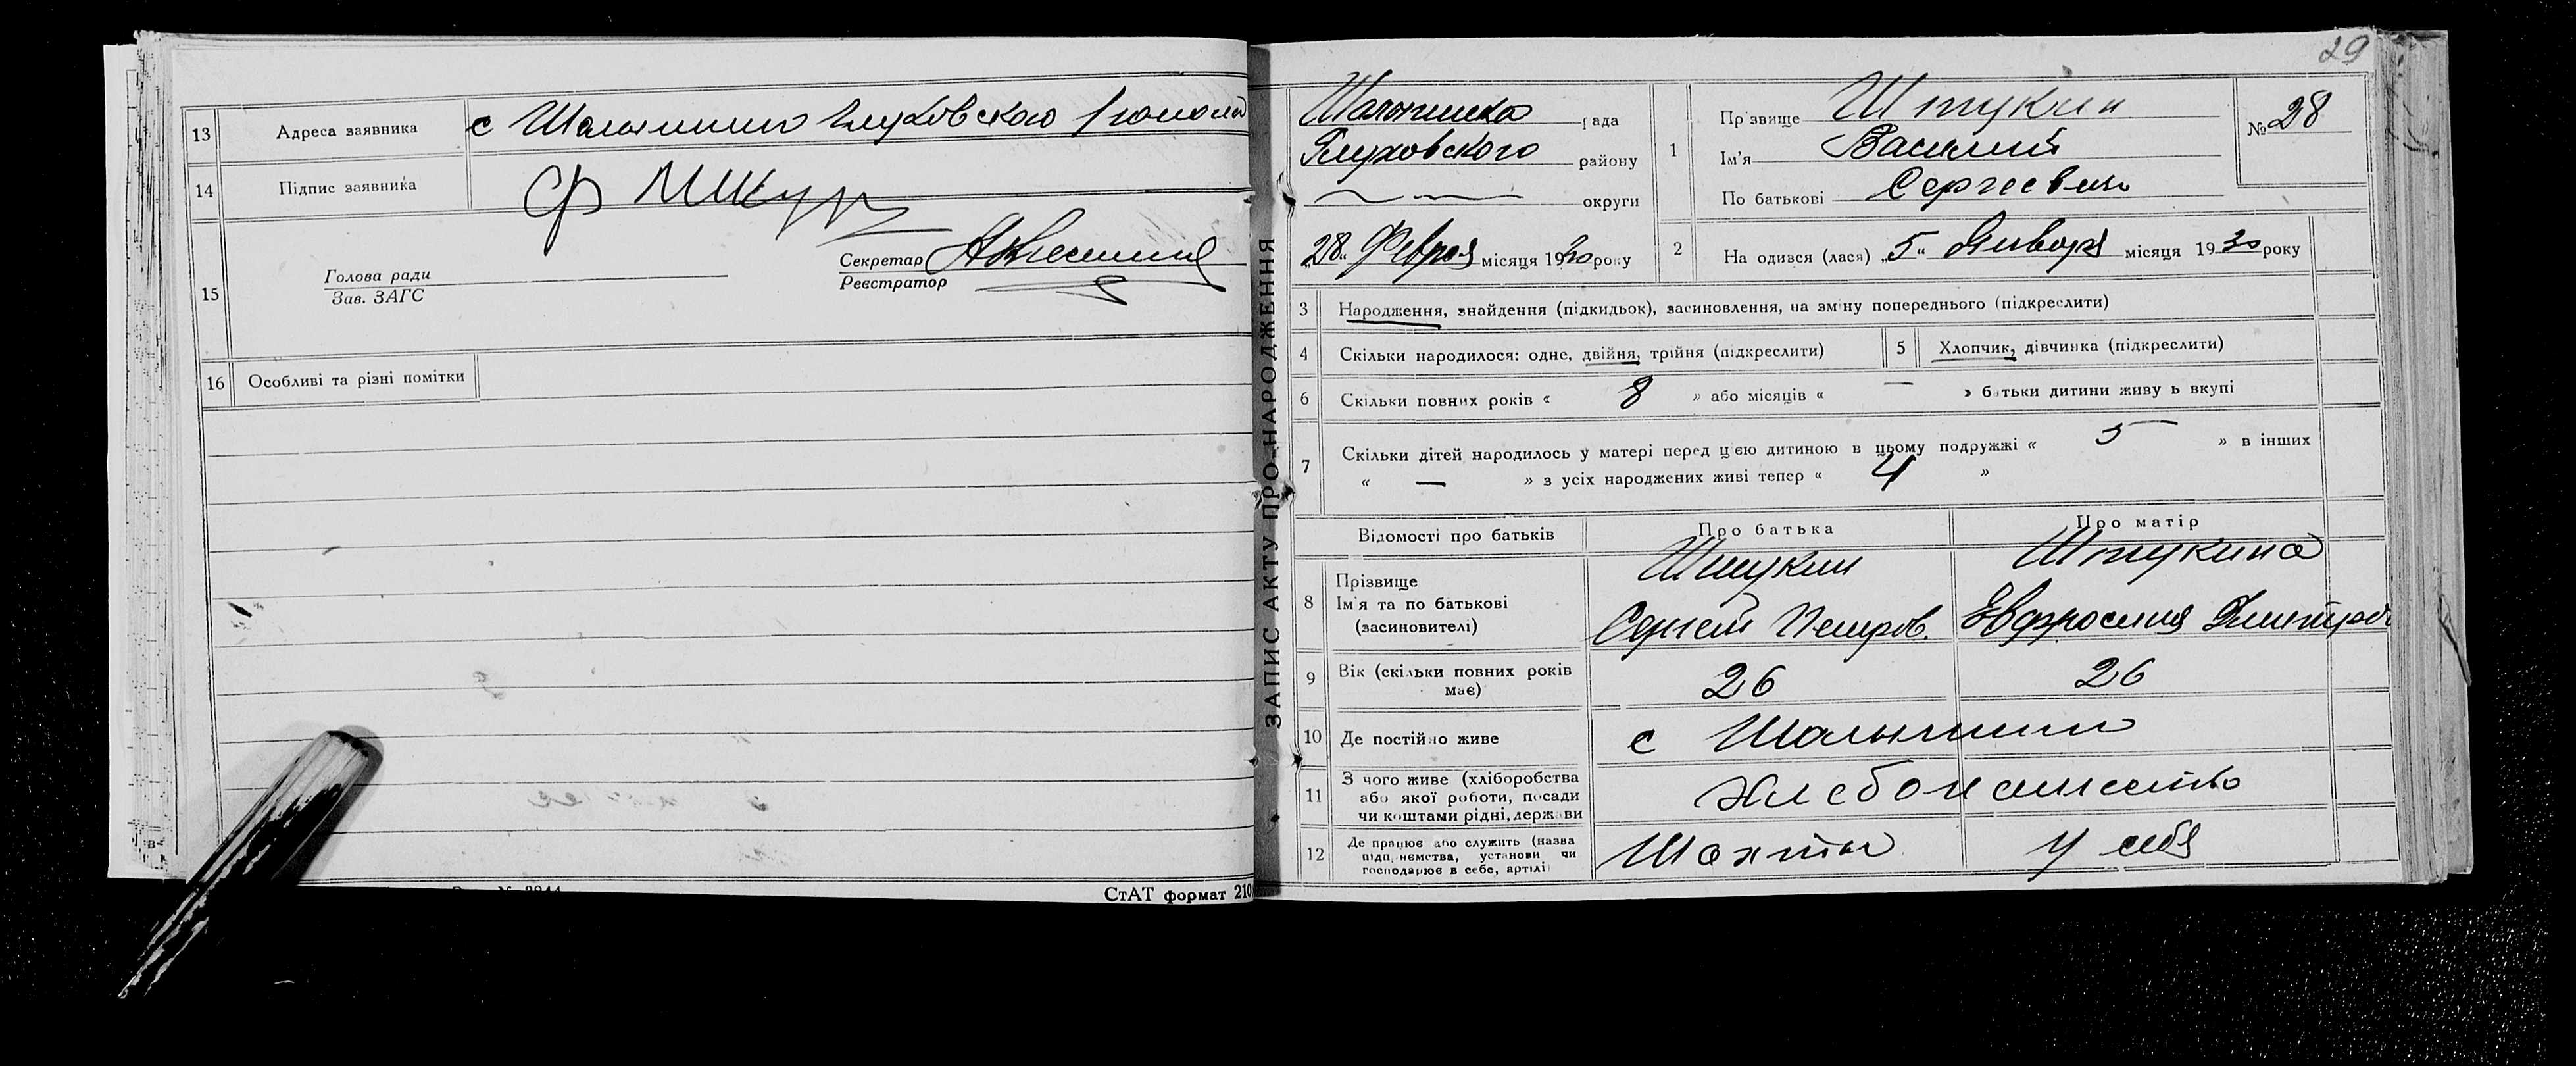 13 Адреса заявника с Шалыгино Глуховского района
14 Підпис заявника
15 Голова ради
Зав. ЗАГС
Секретар
Реєстратор
16 Особливі та різні помітки
СтАТ формат 210
ЗАПИС АКТУ ПРО НАРОДЖЕННЯ
29
рада
Глуховского району
округи
„28“ Февраля місяця 1930 року
1 Прізвище Штукин
Ім'я Василий
По батькові Сергеевич
№ 28
2 Народився (лася) „5“ Января місяця 1930 року
3 Народження, знайдення (підкидьок), засиновлення, на зміну попереднього (підкреслити)
4 Скільки народилося: одне, двійня, трійня (підкреслити)
5 Хлопчик, дівчинка (підкреслити)
6 Скільки повних років « 8 » або місяців « — » батьки дитини живуть вкупі
7 Скільки дітей народилось у матері перед цією дитиною в цьому подружжі « 5 » в інших
« — » з усіх народжених живі тепер « 4 »
Відомості про батьків Про батька Про матір
8 Прізвище Штукин Штукина
Ім'я та по батькові
(засиновителі) Сергей Петров. Евфросиния Дмитров
9 Вік (скільки повних років має) 26 26
10 Де постійно живе с Шалыгино
11 З чого живе (хліборобства
або якої роботи, посади
чи коштами рідні, держави
Хлебопашество
12 Де працює або служить (назва
підприємства, установи чи
господарює в себе, артілі)
Шахты у себя